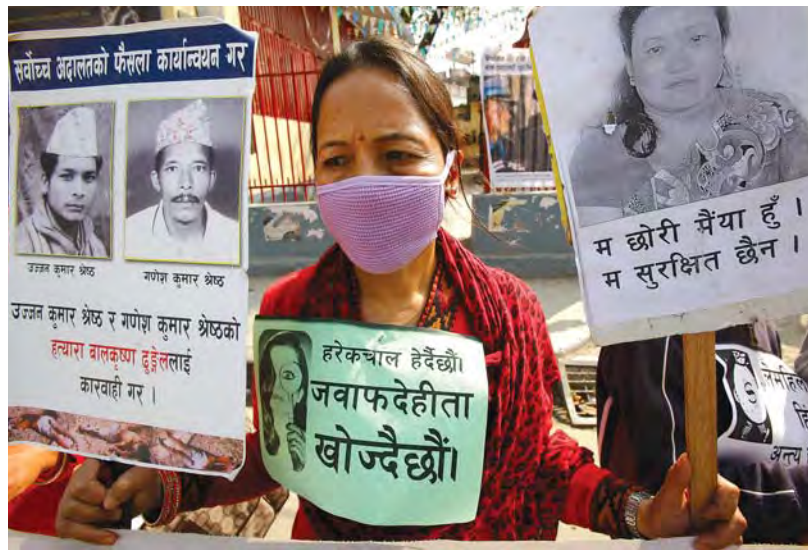 सर्वोच्च अदालतको फैसला कार्यान्वयन गर
उज्जन कुमार श्रेष्ठ
गणेश कुमार श्रेष्ठ
उज्जन कुमार श्रेष्ठ र गणेश कुमार श्रेष्ठको
हत्यारा बालकृष्ण ढुङ्गेललाई
कारवाही गर ।
हरेकचाल हेर्दैछौं।
जवाफदेहीता
खोज्दैछौं।
म छोरी मैंया हुँ ।
म सुरक्षित छैन ।
अन्त्य